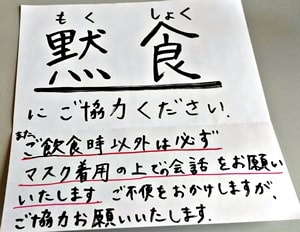 もく しょく
黙食
にご協力ください.
また、
ご飲食時以外は必ず
マスク着用の上での会話をお願い
いたします. ご不便をおかけしますが、
ご協力お願いいたします.